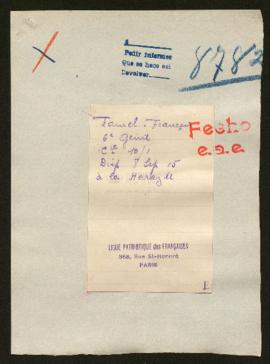 A
Pedir informes
Que se hace así
Devolver
8782
Famel. François
6e Génie
Cie 10/1
Disp 7 Sep 15
à la
Fecho
e.s.e.
LIGUE PATRIOTIQUE des FRANÇAISES
368, Rue St-Honoré
PARIS
E